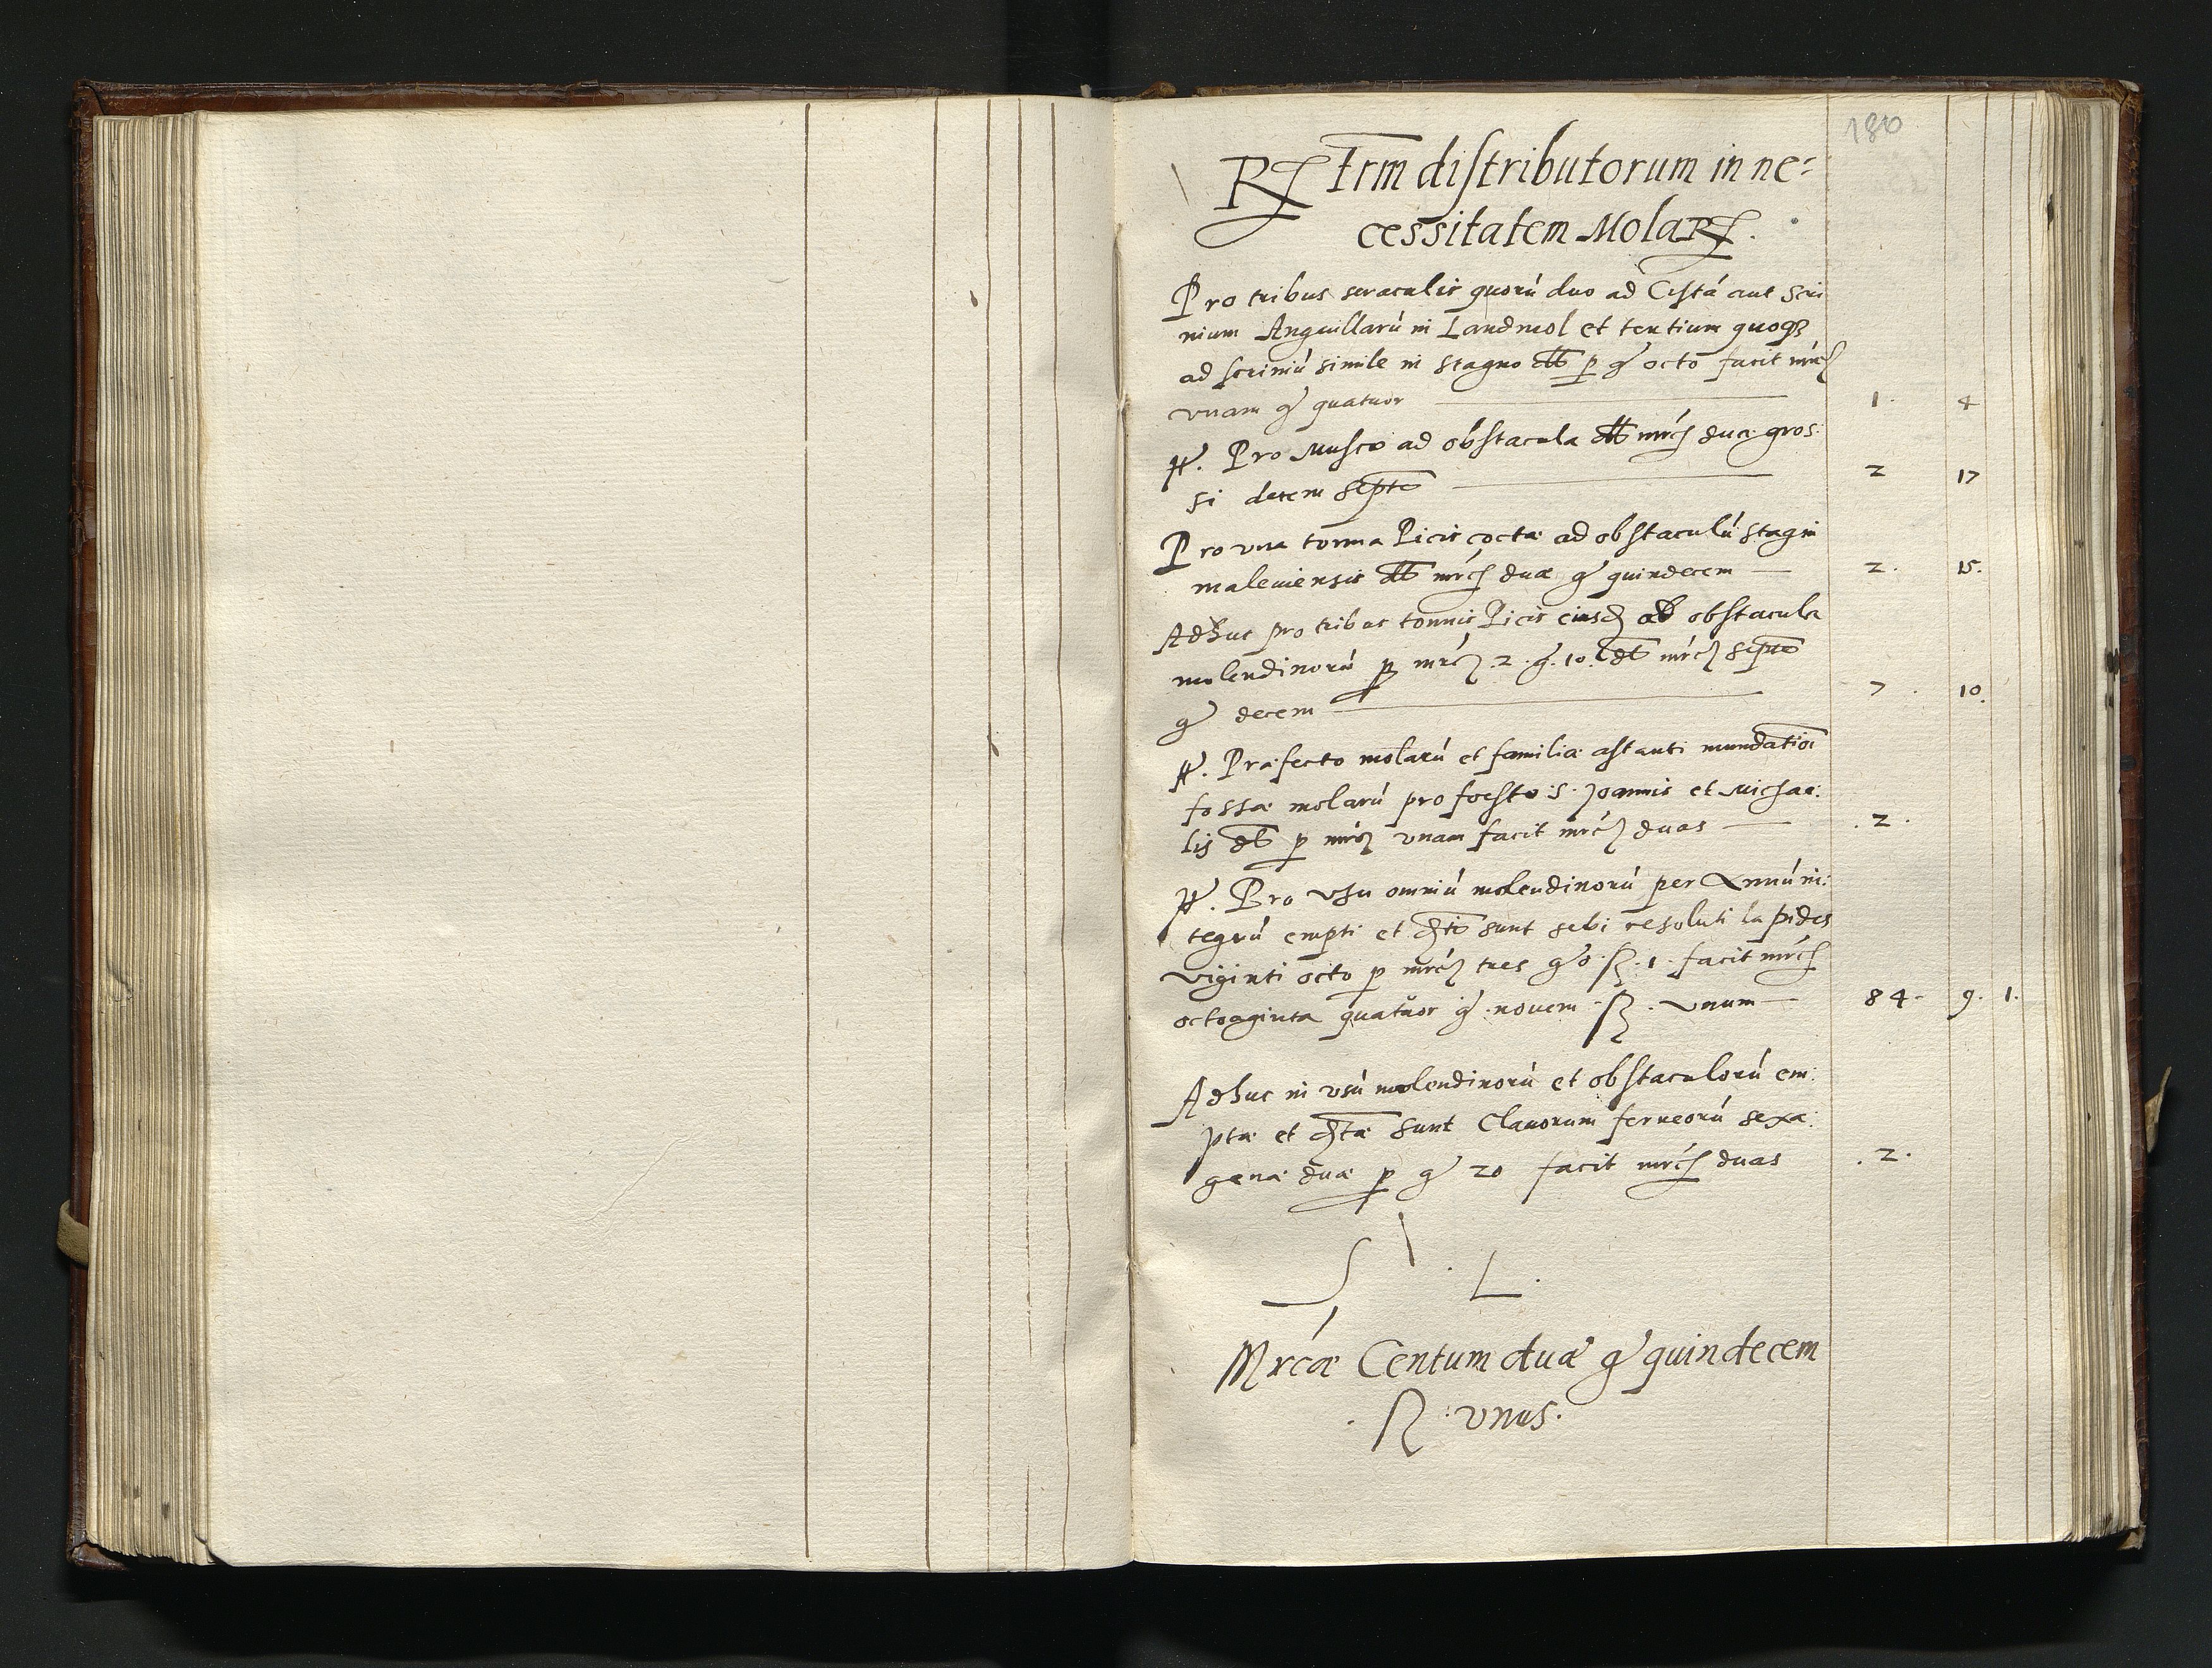 180
Rtrm distributorum in ne:
cessitatem Molarum.
Pro tribus seraculis quorú duo ad Cistá aut Scri
nium Anguillarú in Landmol et tertium quoq3
ad scriniú simile in stagno dtt p gr octo facit mrcs
vnam gr quatuor 1. 4
It. Pro Musco ad obstacula dtt mrcs duæ gros:
si decem septē 2 17
Pro vna tonna Picis coctæ ad obstaculú stagni
maleniensis dtt mrcs duæ gr quindecem 2. 15.
Adhuc pro tribus tonnis Picis eiusd ad obstacula
molendinorú p mrcs .2. g. 10. dtt mrcs septē
gr decem 7. 10.
It. Præfecto molarú et familiæ astanti mundatiōi
fossæ molarú pro foesto S. Joannis et Michae:
lis dtt p mrcs vnam facit mrcs duas .2.
It. Pro vsu omniú molendinorú per Annú in:
tegrú empti et dti sunt sebi resoluti lapides
viginti octo p mrcs tres gr 0. ß. 1. facit mrcs
octoaginta quatuor gr novem ß. vnum 84. 9. 1.
Adhuc in vsú molendinorú et obstaculorú em:
ptæ et dtæ sunt Clavorum ferreorú sexa:
genæ duæ p gr 20 facit mrcs duas .2.
S . L .
Mrcæ Centum duæ gr quindecem
. ß . vnus.